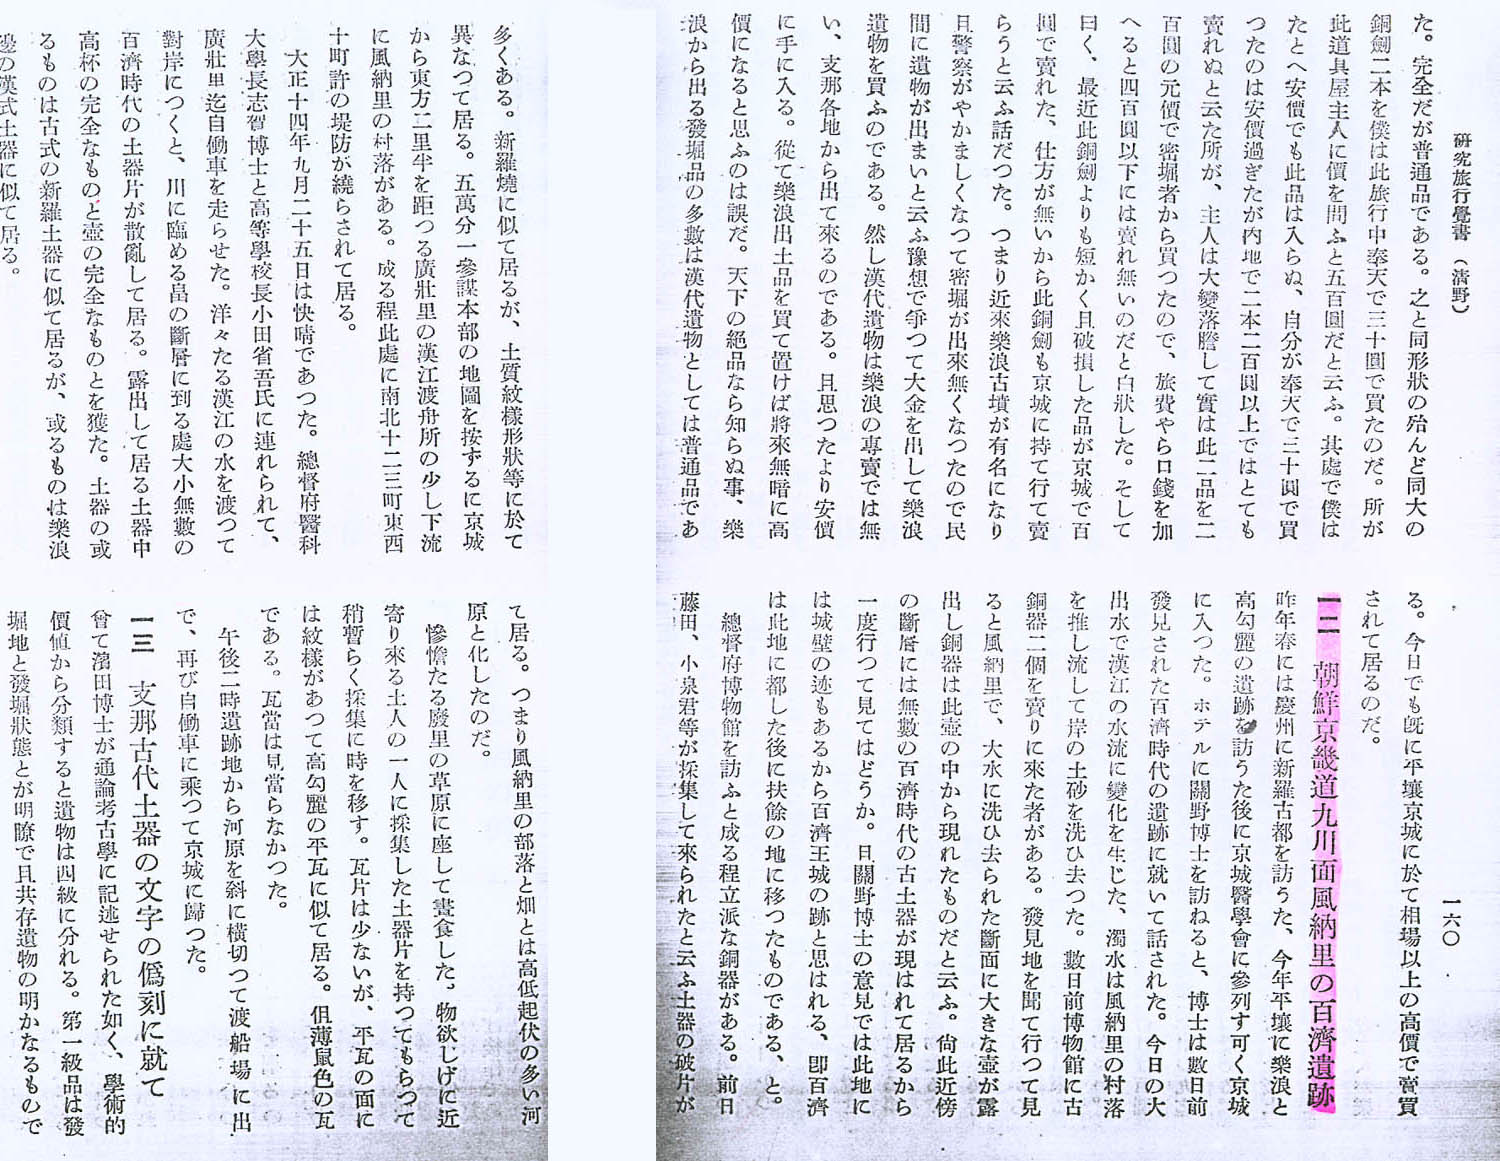 研究旅行覺書（淸野）
一六〇
た。完全だが普通品である。之と同形狀の殆んど同大の
銅劍二本を僕は此旅行中奉天で三十圓で買たのだ。所が
此道具屋主人に價を問ふと五百圓だと云ふ。其處で僕は
たとへ安價でも此品は入らぬ、自分が奉天で三十圓で買
つたのは安價過ぎたが內地で二本二百圓以上ではとても
賣れぬと云た所が、主人は大變落膽して實は此二品を二
百圓の元價で密堀者から買つたので、旅費やら口錢を加
へると四百圓以下には賣れ無いのだと白狀した。そして
曰く、最近此銅劍よりも短かく且破損した品が京城で百
圓で賣れた、仕方が無いから此銅劍も京城に持て行て賣
らうと云ふ話だつた。つまり近來樂浪古墳が有名になり
且警察がやかましくなつて密堀が出來無くなつたので民
間に遺物が出まいと云ふ豫想で爭つて大金を出して樂浪
遺物を買ふのである。然し漢代遺物は樂浪の專賣では無
い、支那各地から出て來るのである。且思つたより安價
に手に入る。從て樂浪出土品を買て置けば將來無暗に高
價になると思ふのは誤だ。天下の絕品なら知らぬ事、樂
浪から出る發堀品の多數は漢代遺物としては普通品であ
る。今日でも旣に平壤京城に於て相場以上の高價で賣買
されて居るのだ。
一二　朝鮮京畿道九川面風納里の百濟遺跡
昨年春には慶州に新羅古都を訪うた、今年平壤に樂浪と
高勾麗の遺跡を訪うた後に京城醫學會に參列す可く京城
に入つた。ホテルに關野博士を訪ねると、博士は數日前
發見された百濟時代の遺跡に就いて話された。今日の大
出水で漢江の水流に變化を生じた、濁水は風納里の村落
を推し流して岸の土砂を洗ひ去つた。數日前博物館に古
銅器二個を賣りに來た者がある。發見地を聞て行つて見
ると風納里で、大水に洗ひ去られた斷面に大きな壺が露
出し銅器は此壺の中から現れたものだと云ふ。尙此近傍
の斷層には無數の百濟時代の古土器が現はれて居るから
一度行つて見てはどうか。且關野博士の意見では此地に
は城壁の迹もあるから百濟王城の跡と思はれる、卽百濟
は此地に都した後に扶餘の地に移つたものである、と。
總督府博物館を訪ふと成る程立派な銅器がある。前日
藤田、小泉君等が採集して來られたと云ふ土器の破片が
多くある。新羅燒に似て居るが、土質紋樣形狀等に於て
異なつて居る。五萬分一參謀本部の地圖を按ずるに京城
から東方二里半を距つる廣壯里の漢江渡舟所の少し下流
に風納里の村落がある。成る程此處に南北十二三町東西
十町許の堤防が繞らされて居る。
大正十四年九月二十五日は快晴であつた。總督府醫科
大學長志賀博士と高等學校長小田省吾氏に連れられて、
廣壯里迄自働車を走らせた。洋々たる漢江の水を渡つて
對岸につくと、川に臨める畠の斷層に到る處大小無數の
百濟時代の土器片が散亂して居る。露出して居る土器中
高杯の完全なものと壺の完全なものとを獲た。土器の或
るものは古式の新羅土器に似て居るが、或るものは樂浪
邊の漢式土器に似て居る。
て居る。つまり風納里の部落と畑とは高低起伏の多い河
原と化したのだ。
慘憺たる廢里の草原に座して晝食した。物欲しげに近
寄り來る土人の一人に採集した土器片を持つてもらつて
稍暫らく採集に時を移す。瓦片は少ないが、平瓦の面に
は紋樣があつて高勾麗の平瓦に似て居る。但薄鼠色の瓦
である。瓦當は見當らなかつた。
午後二時遺跡地から河原を斜に橫切つて渡船場に出
で、再び自働車に乘つて京城に歸つた。
一三　支那古代土器の文字の僞刻に就て
曾て濱田博士が通論考古學に記述せられた如く、學術的
價値から分類すると遺物は四級に分れる。第一級品は發
堀地と發堀狀態とが明瞭で且共存遺物の明かなるもので